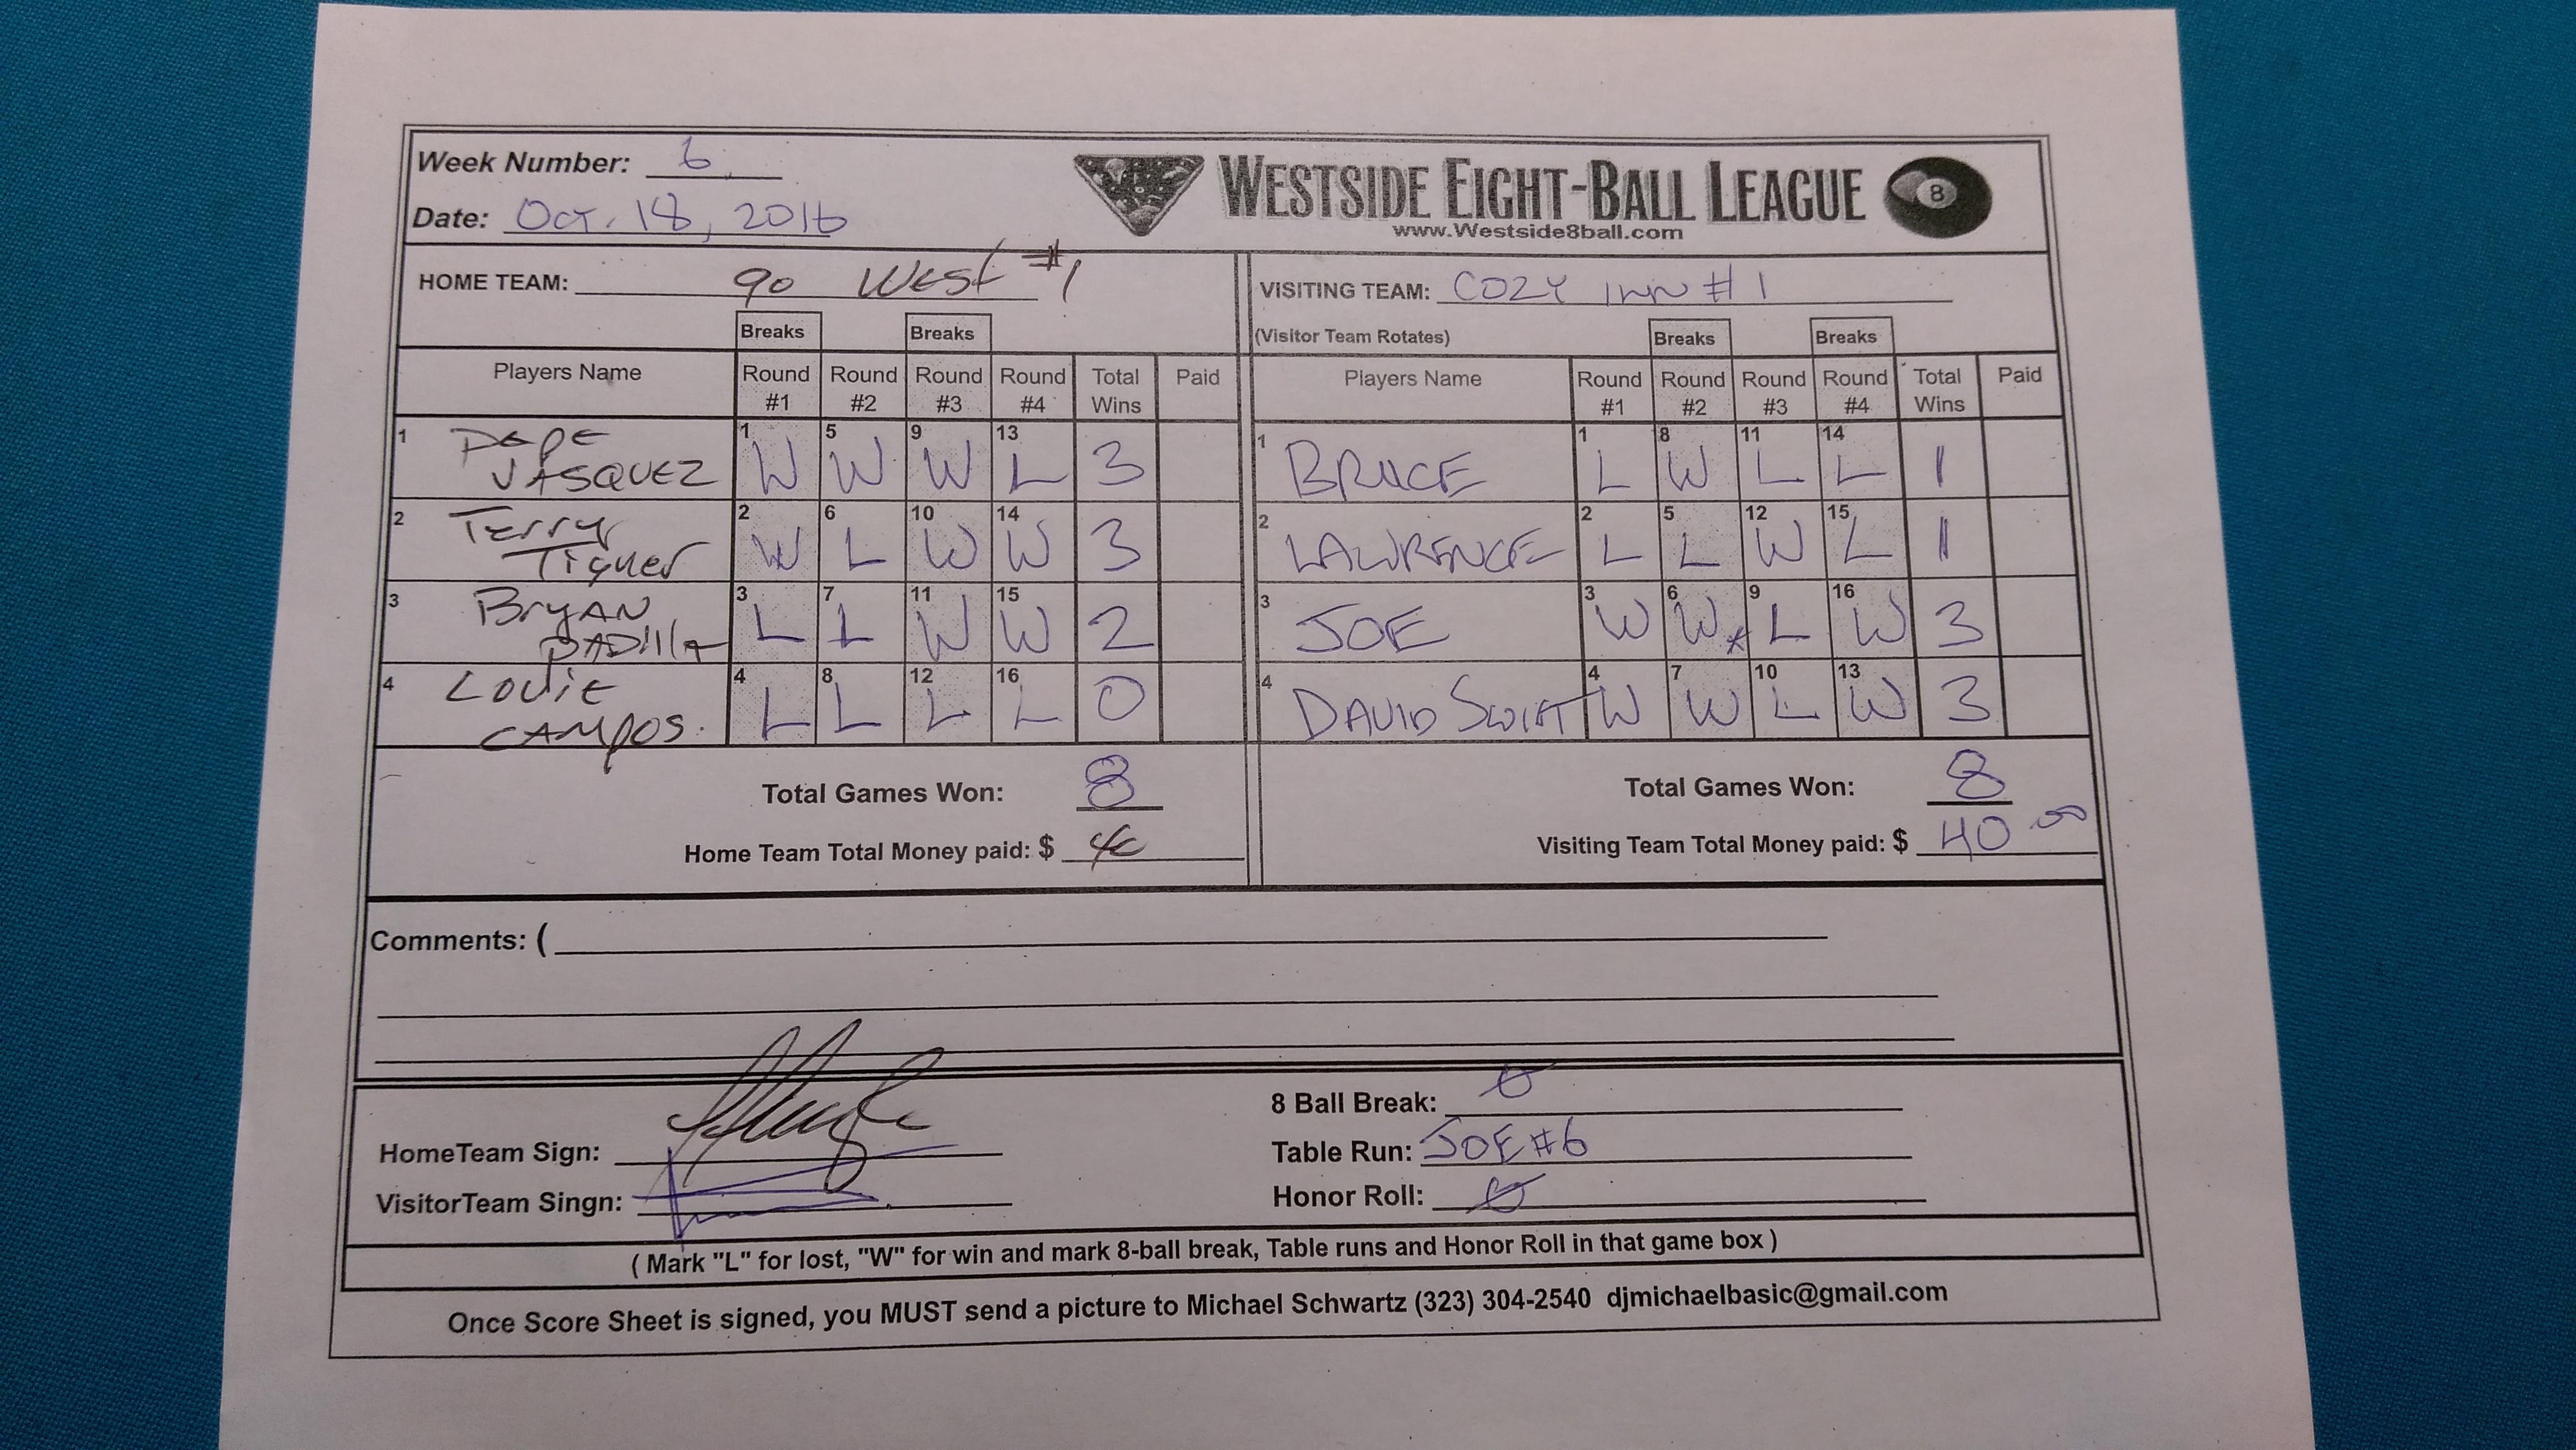 Week Number: 6
Date: Oct. 18, 2016
WESTSIDE EIGHT-BALL LEAGUE
8
www.Westside8ball.com
HOME TEAM: 90 West #1
VISITING TEAM: COZY INN #1
Breaks Breaks
(Visitor Team Rotates) Breaks Breaks
Players Name Round #1 Round #2 Round #3 Round #4 Total Wins Paid
1 Pepe VASQUEZ 1 W 5 W 9 W 13 L 3
2 Terry Tiguer 2 W 6 L 10 W 14 W 3
3 BryAN PADillA 3 L 7 L 11 W 15 W 2
4 Louie CAMpos. 4 L 8 L 12 L 16 L 0
Total Games Won: 8
Home Team Total Money paid: $ 40
Players Name Round #1 Round #2 Round #3 Round #4 Total Wins Paid
1 BRUCE 1 L 8 W 11 L 14 L 1
2 LAWRENCE 2 L 5 L 12 W 15 L 1
3 JOE 3 W 6 W* 9 L 16 W 3
4 DAVID 4 W 7 W 10 L 13 W 3
Total Games Won: 8
Visiting Team Total Money paid: $ 40 00
Comments: (
HomeTeam Sign:
VisitorTeam Singn:
8 Ball Break: 0
Table Run: JOE #6
Honor Roll: 0
( Mark "L" for lost, "W" for win and mark 8-ball break, Table runs and Honor Roll in that game box )
Once Score Sheet is signed, you MUST send a picture to Michael Schwartz (323) 304-2540 djmichaelbasic@gmail.com